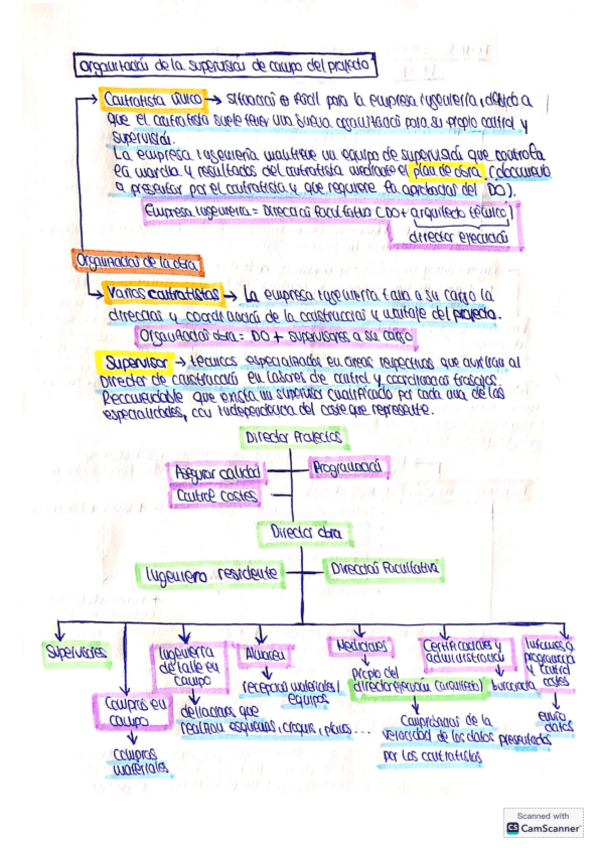 Organización de la supervisión de campo del proyecto
Contratista único → situación + fácil para la empresa ingeniería, debido a
que el contratista suele tener una buena organización para su propio control y
supervisión.
La empresa ingeniería mantiene un equipo de supervisión que controla
la marcha y resultados del contratista mediante el plan de obra (documento
a presentar por el contratista y que requiere la aprobación del DO).
Empresa Ingeniería = Dirección Facultativa (DO + arquitecto técnico)
director ejecución
Organización de la obra
Varios contratistas → La empresa ingeniería lleva a su cargo la
dirección y coordinación de la construcción y montaje del proyecto.
Organización obra = DO + supervisores a su cargo
Supervisor → técnicos especializados en áreas respectivas que auxilian al
Director de construcción en labores de control y coordinación trabajos.
Recomendable que exista un supervisor cualificado por cada una de las
especialidades, con independencia del coste que represente.
Director Proyectos
Asegurar calidad
Programación
Control costes
Director obra
Ingeniero residente
Dirección Facultativa
Supervisores
Compras en
campo
↓
compras
materiales
Ingeniería
detalle en
campo
↓
delineación que
realizan esquemas, croquis, planos...
Almacén
↓
recepción materiales /
equipos
Mediciones
↓
propio del
director ejecución (arquitecto)
↓
Comprobación de la
veracidad de los datos presentados
por los contratistas
Certificaciones y
administración
↓
burocracia
Informes,
programación
y control
costes
↓
datos
Scanned with
CS CamScanner